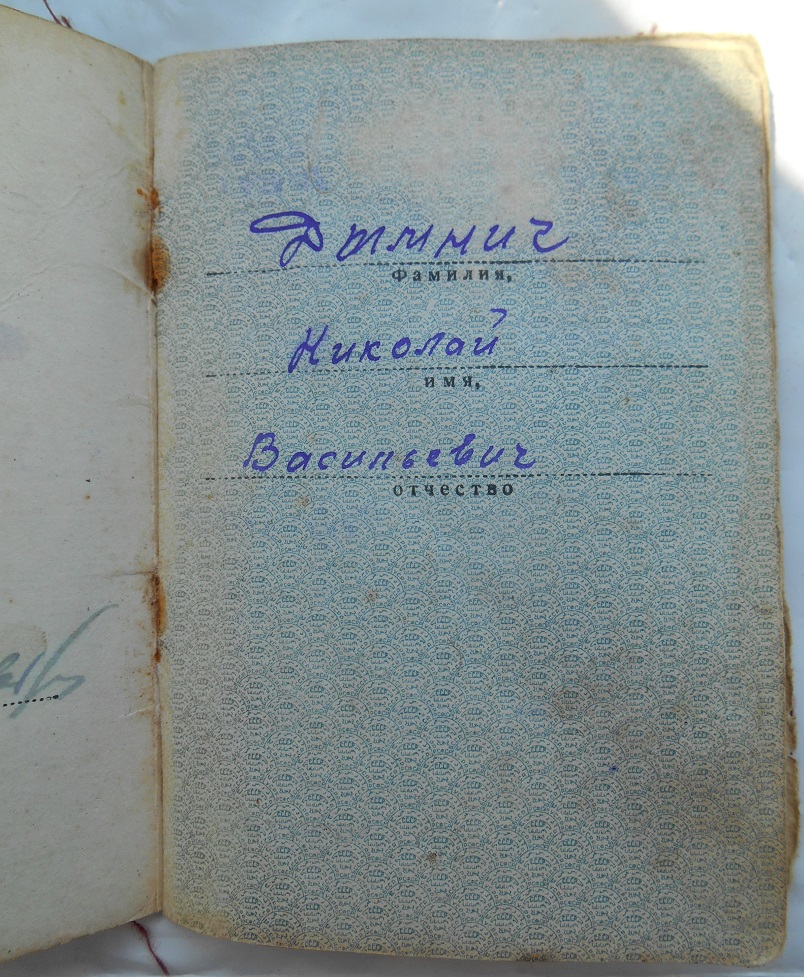 Дымнич
Фамилия,
Николай
имя,
Васильевич
отчество